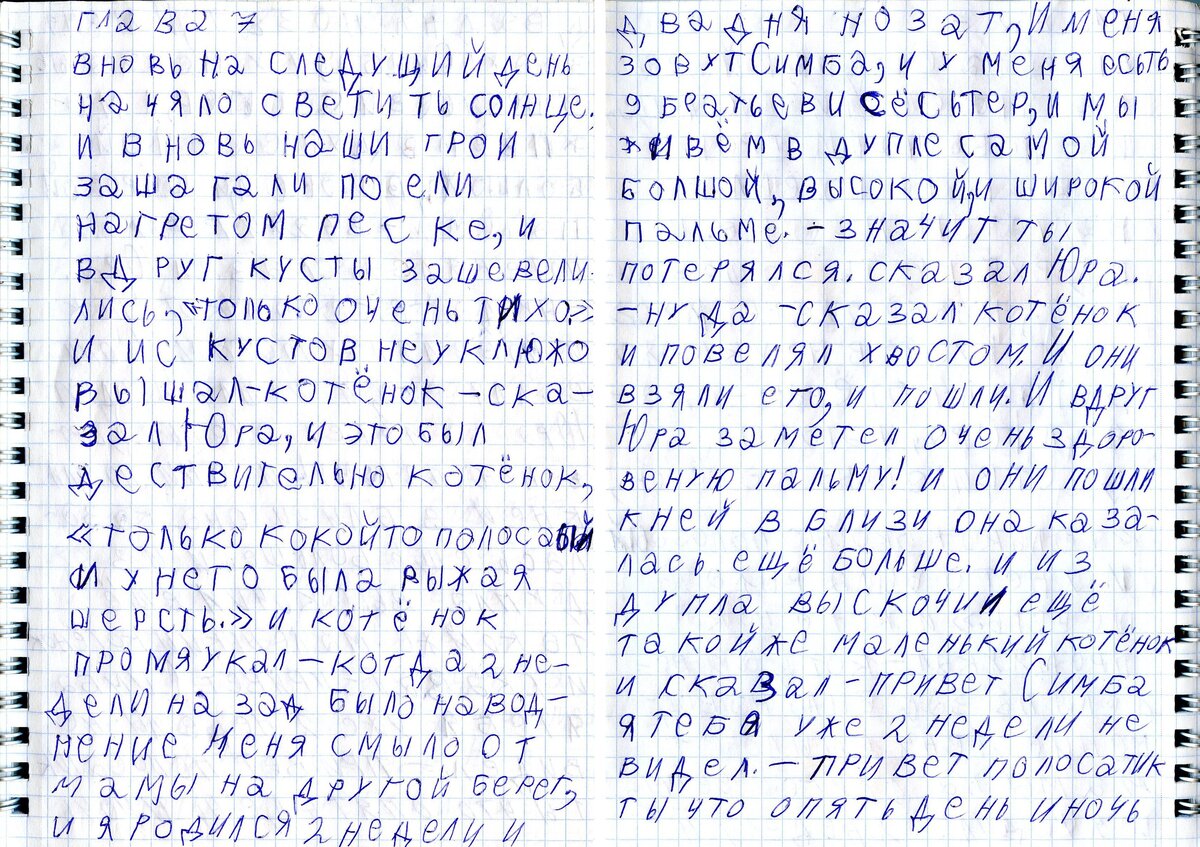 глава 7
вновь на следущий день
начяло светить солнце.
и вновь наши грои
зашагали по ели
нагретом песке, и
вдруг кусты зашевели-
лись, «только очень тихо.»
и ис кустов неуклюжо
вышал-котёнок-ска-
зал Юра, и это был
дествительно котёнок,
«только кокойто полосатый
и у него была рыжая
шерсть.» и котёнок
промяукал-когда 2 не-
дели на зад было навод-
нение меня смыло от
мамы на другой берег,
и я родился 2 недели и
два дня нозат, и меня
зовут Симба, и у меня есьть
9 братьев и сёсьтер, и мы
живём в дупле самой
болшой, высокой, и широкой
пальме. -значит ты
потерялся. сказал Юра.
-ну да -сказал котёнок
и повелял хвостом. и они
взяли его, и пошли. и вдруг
Юра заметел очень здоро-
веную пальму! и они пошли
кней в близи она каза-
лась ещё больше. и из
дупла выскочил ещё
такойже маленький котёнок
и сказал-привет Симба
я тебя уже 2 недели не
видел.-привет полосатик
ты что опять день и ночь